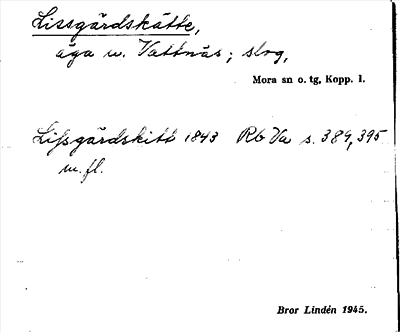 Lissgärdskätte,
äga u. Vattnäs; slog,
Mora sn o. tg, Kopp. l.
Lifsgärdskitt 1843 Rb Va s. 389, 395
m. fl.
Bror Lindén 1945.